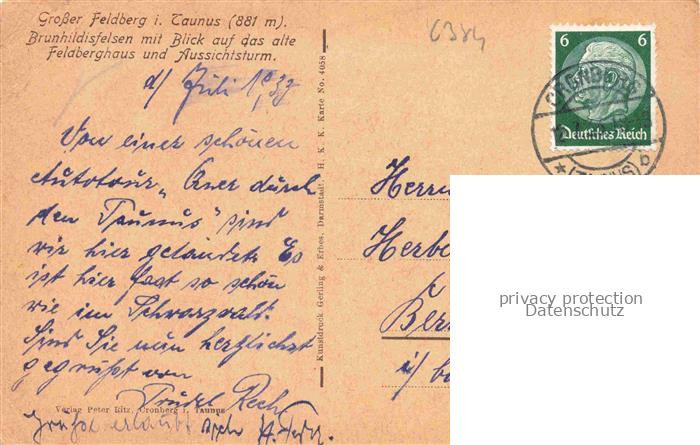 Großer Feldberg i. Taunus (881 m).
Brunhildisfelsen mit Blick auf das alte
Feldberghaus und Aussichtsturm.
6384
d/ Juli 1939
Von einer schönen
Autotour „Quer durch
den Taunus“ sind
wir hier gelandet. Es
ist hier fast so schön
wie im Schwarzwald.
Sind Sie nun herzlichst
gegrüßt von
Trudel
Grüße erlaubt sich
Verlag Peter Ritz, Cronberg i. Taunus
Kunstdruck Gerling & Erbes, Darmstadt. H. K. K. Karte No. 4058
6 6
Deutsches Reich
CRONBERG
(TAUNUS)
b
Herrn
Herbe
Ber
i/ ba
privacy protection
Datenschutz